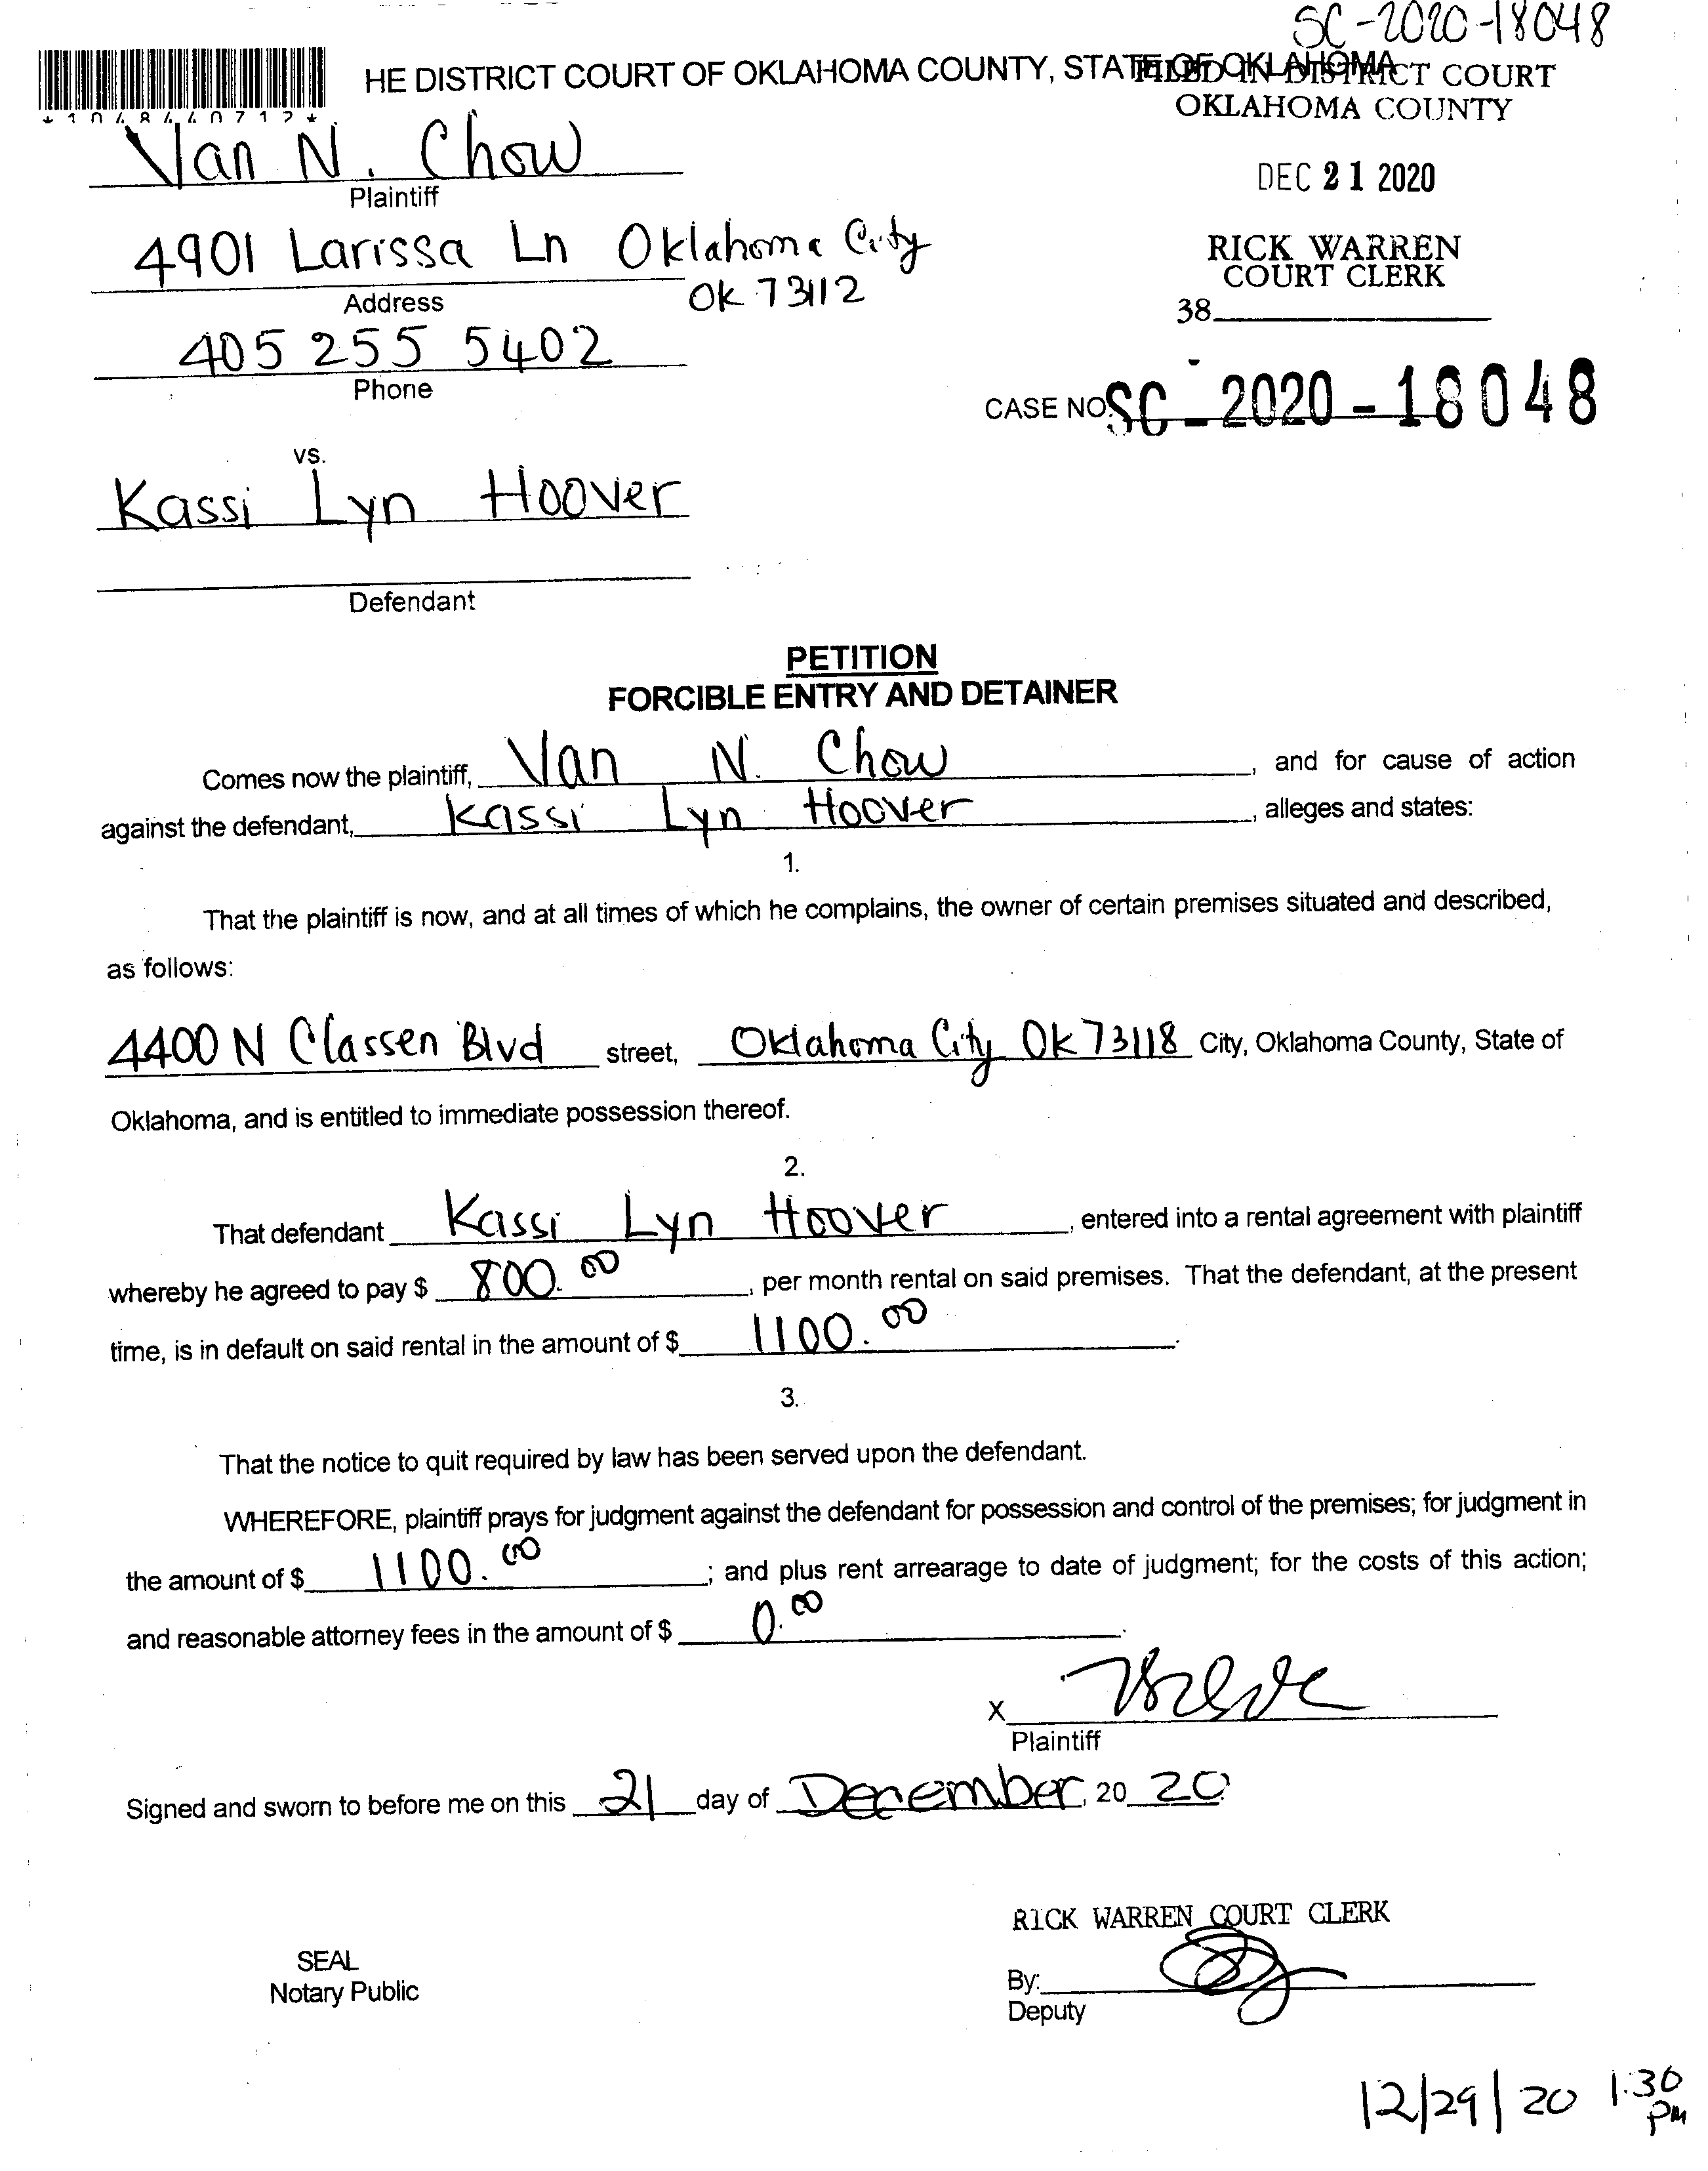 SC-2020-18048
HE DISTRICT COURT OF OKLAHOMA COUNTY, STATE OF OKLAHOMA
FILED IN DISTRICT COURT
OKLAHOMA COUNTY
*1048440712*
Van N. Chow
Plaintiff
DEC 21 2020
4901 Larissa Ln Oklahoma City
OK 73112
Address
RICK WARREN
COURT CLERK
38
405 255 5402
Phone
CASE NO. SC - 2020 - 18048
vs.
Kassi Lyn Hoover
Defendant
PETITION
FORCIBLE ENTRY AND DETAINER
Comes now the plaintiff, Van N. Chow, and for cause of action
against the defendant, Kassi Lyn Hoover, alleges and states:
1.
That the plaintiff is now, and at all times of which he complains, the owner of certain premises situated and described,
as follows:
4400 N Classen Blvd street, Oklahoma City OK 73118 City, Oklahoma County, State of
Oklahoma, and is entitled to immediate possession thereof.
2.
That defendant Kassi Lyn Hoover, entered into a rental agreement with plaintiff
whereby he agreed to pay $ 800.00, per month rental on said premises. That the defendant, at the present
time, is in default on said rental in the amount of $ 1100.00.
3.
That the notice to quit required by law has been served upon the defendant.
WHEREFORE, plaintiff prays for judgment against the defendant for possession and control of the premises; for judgment in
the amount of $ 1100.00; and plus rent arrearage to date of judgment; for the costs of this action;
and reasonable attorney fees in the amount of $ 0.00.
X
Plaintiff
Signed and sworn to before me on this 21 day of December, 20 20
RICK WARREN COURT CLERK
SEAL
Notary Public
By:
Deputy
12/29/20 1:30
PM